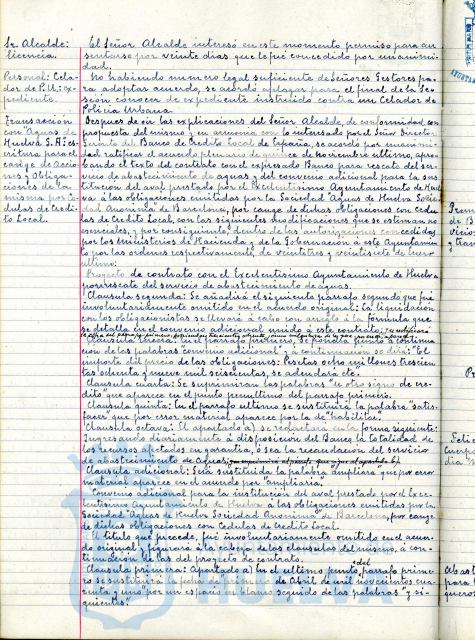 Sr. Alcalde:
licencia.
El Señor Alcalde interesó en este momento permiso para au
sentarse por veinte dias que le fué concedido por unanimi-
dad.
Personal: Cela-
dor de P.U.: ex-
pediente.
No habiendo numero legal suficiente de Señores Gestores pa-
ra adoptar acuerdo, se acordó aplazar para el final de la Se-
sión conocer de expediente instruido contra un Celador de
Policia Urbana.
Transacción
con "Aguas de
Huelva S.A": es-
critura para el
cange de Accio-
nes y Obliga-
ciones de la
misma por Cé-
dulas de Credi-
to Local.
Despues de oir las explicaciones del Señor Alcalde, de conformidad, con
propuesta del mismo y en armonia con lo interesado por el Señor Director
Gerente del Banco de Credito Local de España, se acordó por unanimi-
dad ratificar el acuerdo plenario de quince de noviembre ultimo, apro-
bando el texto de contrato con el expresado Banco para rescate del ser-
vicio de abastecimiento de aguas y del convenio adicional para la sus-
titucion del aval prestado por el Excelentisimo Ayuntamiento de Huel-
va á las obligaciones emitidas por la Sociedad "Aguas de Huelva Socie
dad Anonima" de Barcelona, por cange de dichas obligaciones con Cedu-
las de Credito Local, con las siguientes modificaciones que se estiman no
esenciales, y por consiguiente, dentro de las autorizaciones concedidas
por los Ministerios de Hacienda y de la Gobernación á este Ayuntamien-
to por las ordenes respectivamente, de veintitres y veintisiete de Enero
ultimo:
Proyecto de contrato con el Excelentisimo Ayuntamiento de Huelva
por rescate del servicio de abastecimiento de aguas.
Clausula segunda: Se añadirá el siguiente parrafo segundo que fué
involuntariamente omitido en el acuerdo original: La liquidación
con los obligacionistas se llevará a cabo con arreglo a la formula que
se detalla en el convenio adicional unido a este contrato;
Clausula tercera: En el parrafo primero, se pondrá punto a continua
cion de las palabras convenio adicional" a continuacion se dirá: "El
importe del precio de las obligaciones: Pesetas ocho millones trescien-
tas ochenta y nueve mil seiscientas, se adeudará etc.
Clausula cuarta: Se suprimiran las palabras "u otro signo de cre-
dito" que aparecen en el punto penultimo del parrafo primero.
Clausula quinta: En el parrafo ultimo se sustituirá la palabra "satis-
facer que por error material aparece por la de "habilitar"
Clausula octava: El apartado a) se redactará en la forma siguiente:
Ingresando diariamente á disposicion del Banco la totalidad de
los recursos afectados en garantia, ó sea la recaudación del servicio
de abastecimiento de Aguas,
Clausula adicional: Será sustituida la palabra "ampliara que por error
material aparece en el acuerdo por "ampliaria.
Convenio adicional para la institucion del aval prestado por el Exce-
lentisimo Ayuntamiento de Huelva á las obligaciones emitidas por la
Sociedad "Aguas de Huelva Sociedad Anonima" de Barcelona, por cange
de dichas obligaciones con Cedulas de Credito Local.
El titulo que precede, fué involuntariamente omitido en el acuer-
do original y figurará á la cabeza de las clausulas del mismo, á con-
tinuacion de las del proyecto de contrato.
Clausula primera: Apartado a) En el ultimo punto del parrafo prime-
ro se sustituirá la fecha de primero de Abril de mil novecientos cua-
renta y uno por un espacio en blanco seguido de las palabras "y si-
guientes."